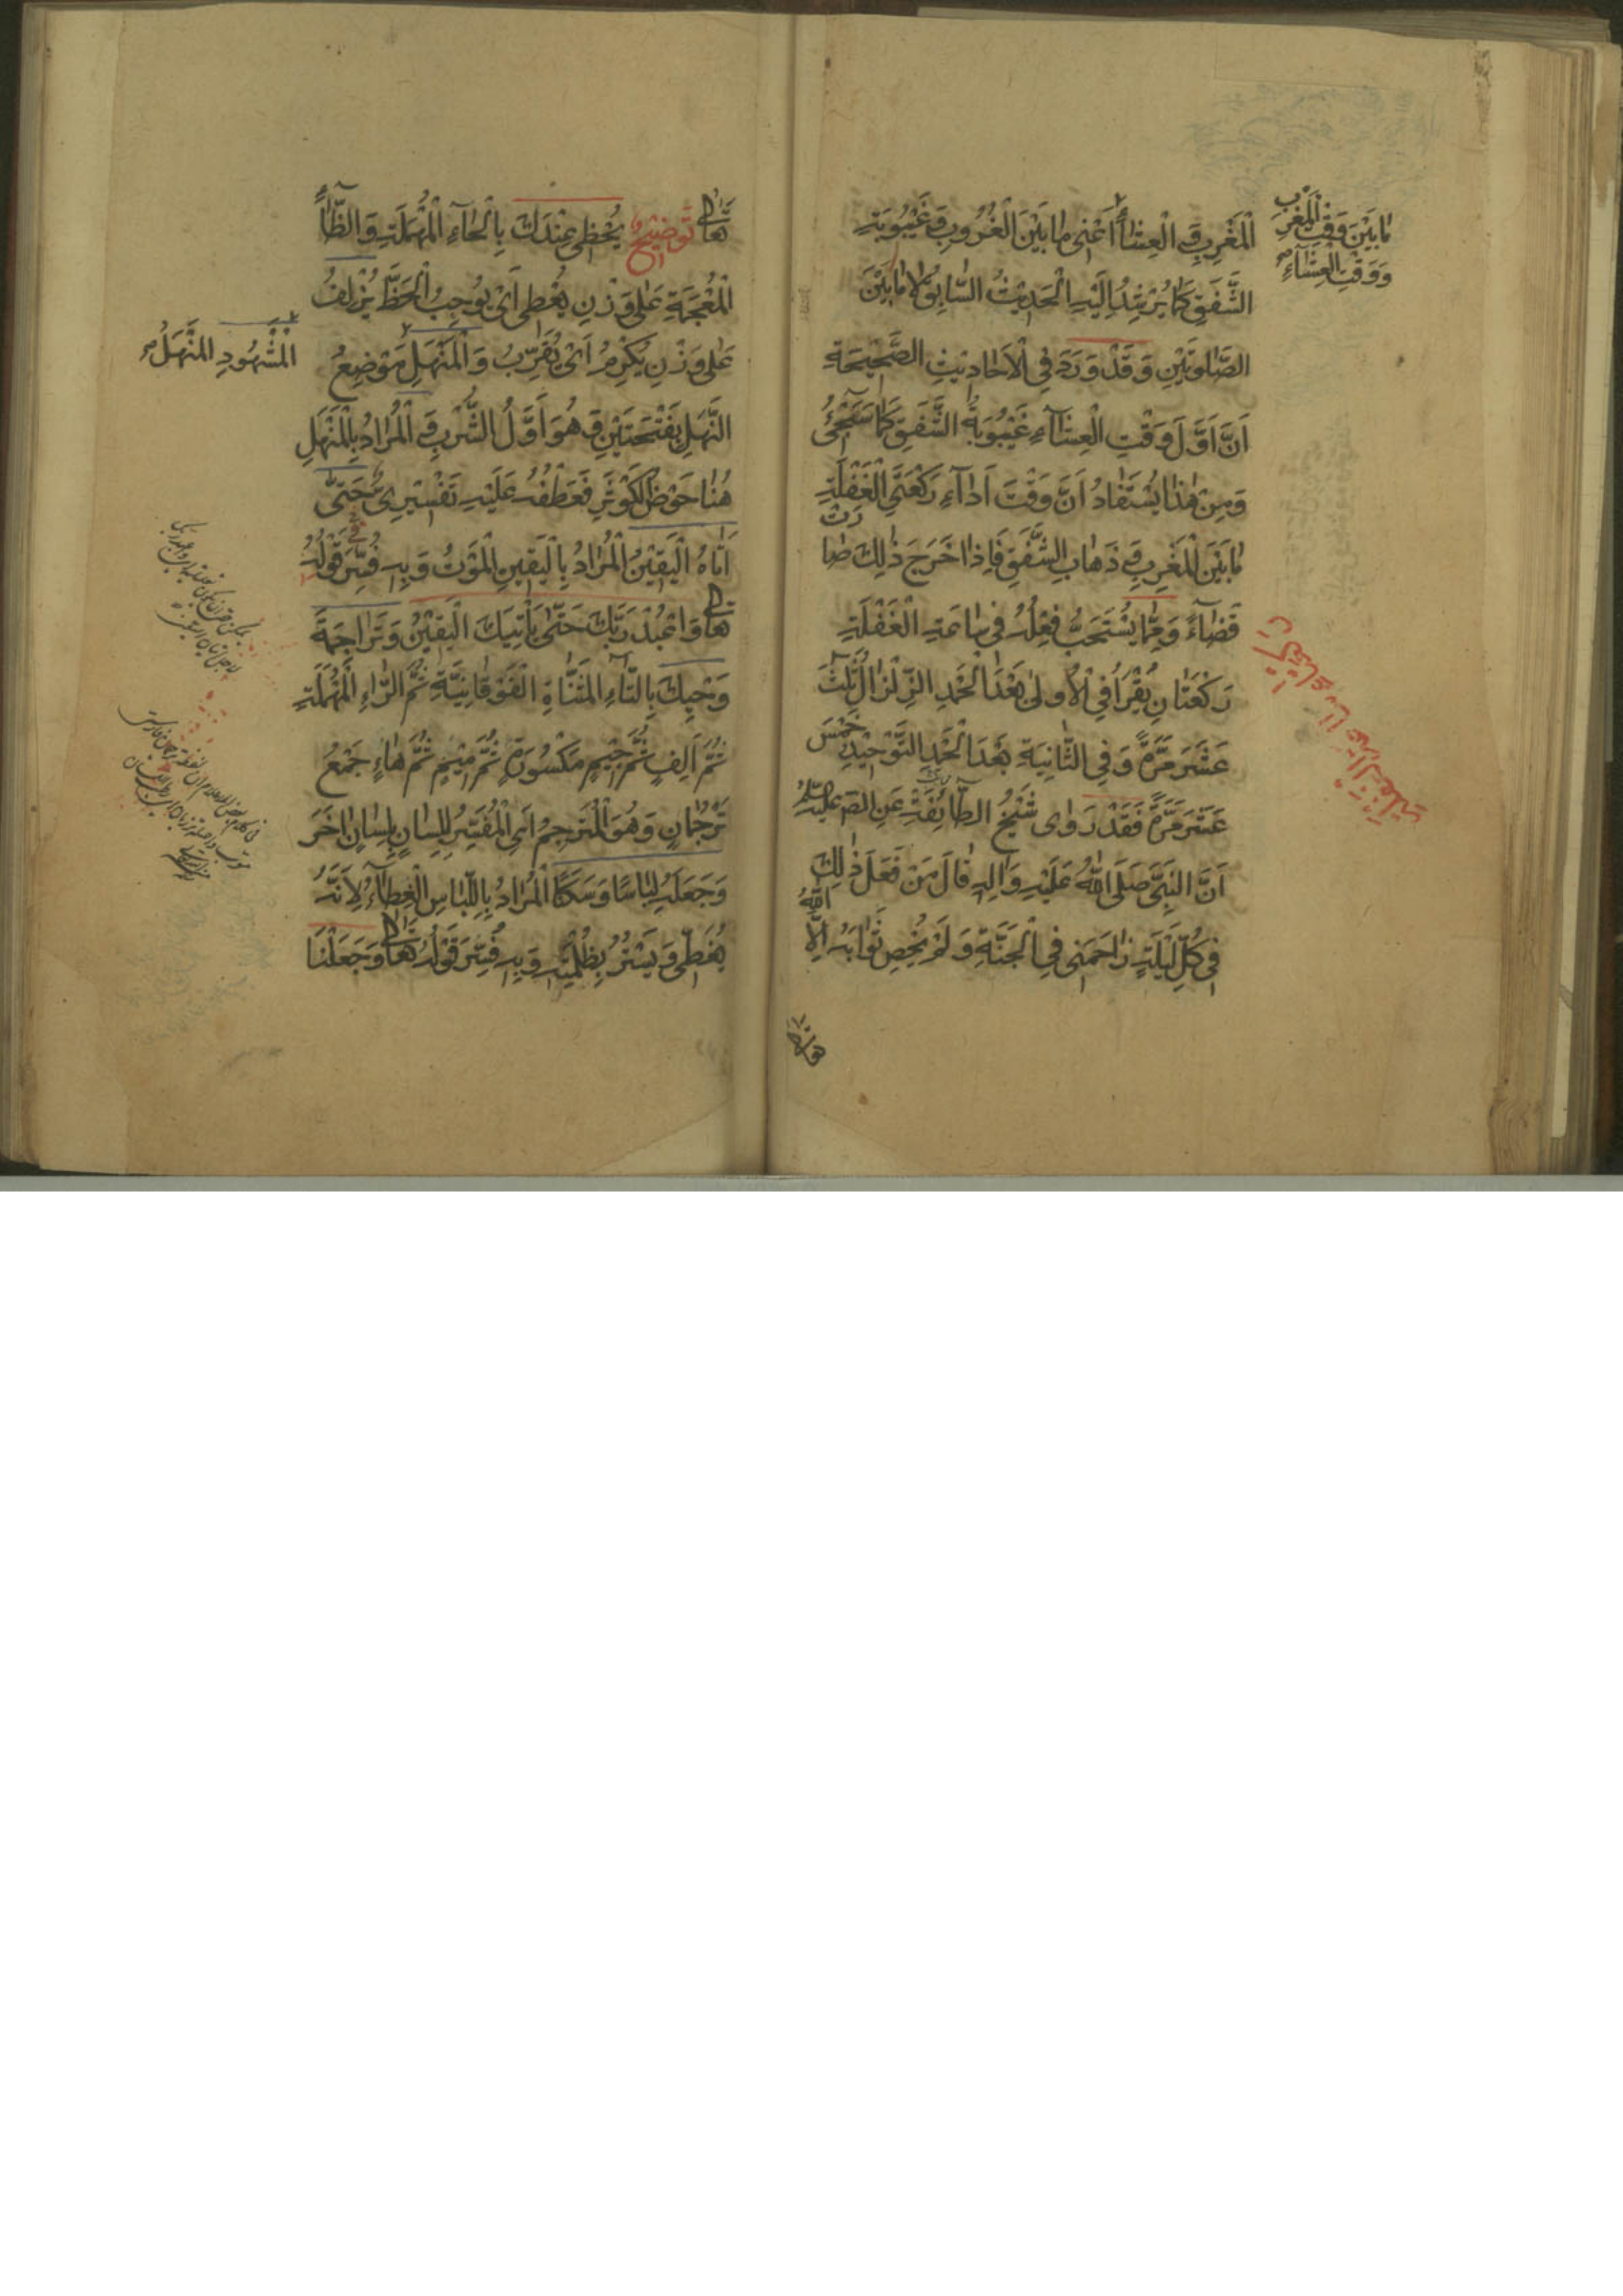 الْمَغْرِبِ وَ الْعِشَاءِ أَعْنِى مَا بَيْنَ الْغُرُوبِ وَ غَيْبُوبَةِ
الشَّفَقِ كَمَا يُرْشِدُ إِلَيْهِ الْحَدِيْثُ السَّابِقُ لَا مَا بَيْنَ
الصَّلوتَيْنِ وَ قَدْ وَرَدَ فِى الْأَحَادِيْثِ الصَّحِيْحَةِ
اَنَّ اَوَّلَ وَقْتِ الْعِشَآءِ غَيْبُوبَةُ الشَّفَقِ كَمَا سَيَجِئُ
وَ مِنْ هٰذَا يُسْتَفَادُ اَنَّ وَقْتَ اَدَآءِ رَكْعَتَىِ الْغَفْلَةِ
مَا بَيْنَ الْمَغْرِبِ وَ ذَهَابِ الشَّفَقِ فَاِذَا خَرَجَ ذٰلِكَ صَارَتْ
قَضَآءً وَ مِمَّا يُسْتَحَبُّ فِعْلُهُ فِى سَاعَةِ الْغَفْلَةِ
رَكْعَتَانِ يُقْرَأُ فِى الْأُولىٰ بَعْدَ الْحَمْدِ الزِّلْزَالُ ثَلٰثَ
عَشَرَ مَرَّةً وَ فِى الثَّانِيَةِ بَعْدَ الْحَمْدِ التَّوْحِيْدِ خَمْسَ
عَشَرَ مَرَّةً فَقَدْ رَوٰى شَيْخُ الطَّآئِفَةِ عَنِ الصّ عَلَيْهِ السَّلَمُ
اَنَّ النَّبِىَّ صَلَّى اللّٰهُ عَلَيْهِ وَ اٰلِهِ قَالَ مَنْ فَعَلَ ذٰلِكَ
فِى كُلِّ لَيْلَةٍ زَاحَمَنِى فِى الْجَنَّةِ وَ لَمْ يُحْصِ ثَوَابَهُ اِلَّا اللّٰهُ
مَا بَيْنَ وَقْتِ الْمَغْرِبِ
وَ وَقْتِ الْعِشَآءِ
تَعَالىٰ تَوْضِيْحٌ يُحْظِى عِنْدَكَ بِالْحَآءِ الْمُهْمَلَةِ وَ الظَّآءِ
الْمُعْجَمَةِ عَلٰى وَزْنِ يُعْطِى اَىْ يُوجِبُ الْحَظَّ يُزْلِفُ
عَلٰى وَزْنِ يُكْرِمُ اَىْ يُقَرِّبُ وَ الْمَنْهَلِ مَوْضِعُ
النَّهَلِ بِفَتْحَتَيْنِ وَ هُوَ اَوَّلُ الشُّرْبِ وَ الْمُرَادُ بِالْمَنْهَلِ
هُنَا حَوْضُ الْكَوْثَرِ فَعَطْفُهُ عَلَيْهِ تَفْسِيْرِىٌّ حَتّٰى
اَتَاهُ الْيَقِيْنُ الْمُرَادُ بِالْيَقِيْنِ الْمَوْتُ وَ بِهِ فُسِّرَ قَوْلُهُ
تَعَالىٰ وَ اعْبُدْ رَبَّكَ حَتّٰى يَأْتِيَكَ الْيَقِيْنُ وَ تَرَاجِمَةَ
وَحْيِكَ بِالتَّآءِ الْمُثَنَّاةِ الْفَوْقَانِيَّةِ ثُمَّ الرَّاءِ الْمُهْمَلَةِ
ثُمَّ اَلِفٍ ثُمَّ جِيْمٍ مَكْسُورَةٍ ثُمَّ مِيْمٍ ثُمَّ هَاءٍ جَمْعُ
تَرْجُمَانٍ وَ هُوَ الْمُتَرْجِمُ اَىِ الْمُفَسِّرُ لِلِسَانٍ بِلِسَانٍ اٰخَرَ
وَ جَعَلَهُ لِبَاسًا وَ سَكَنًا الْمُرَادُ بِاللِّبَاسِ الْغِطَآءُ لِاَنَّهُ
يُغَطِّى وَ يَسْتُرُ بِظُلْمَتِهِ وَ بِهِ فُسِّرَ قَوْلُهُ تَعَالىٰ وَ جَعَلْنَا
الْمَشْهُودِ الْمَنْهَلُ